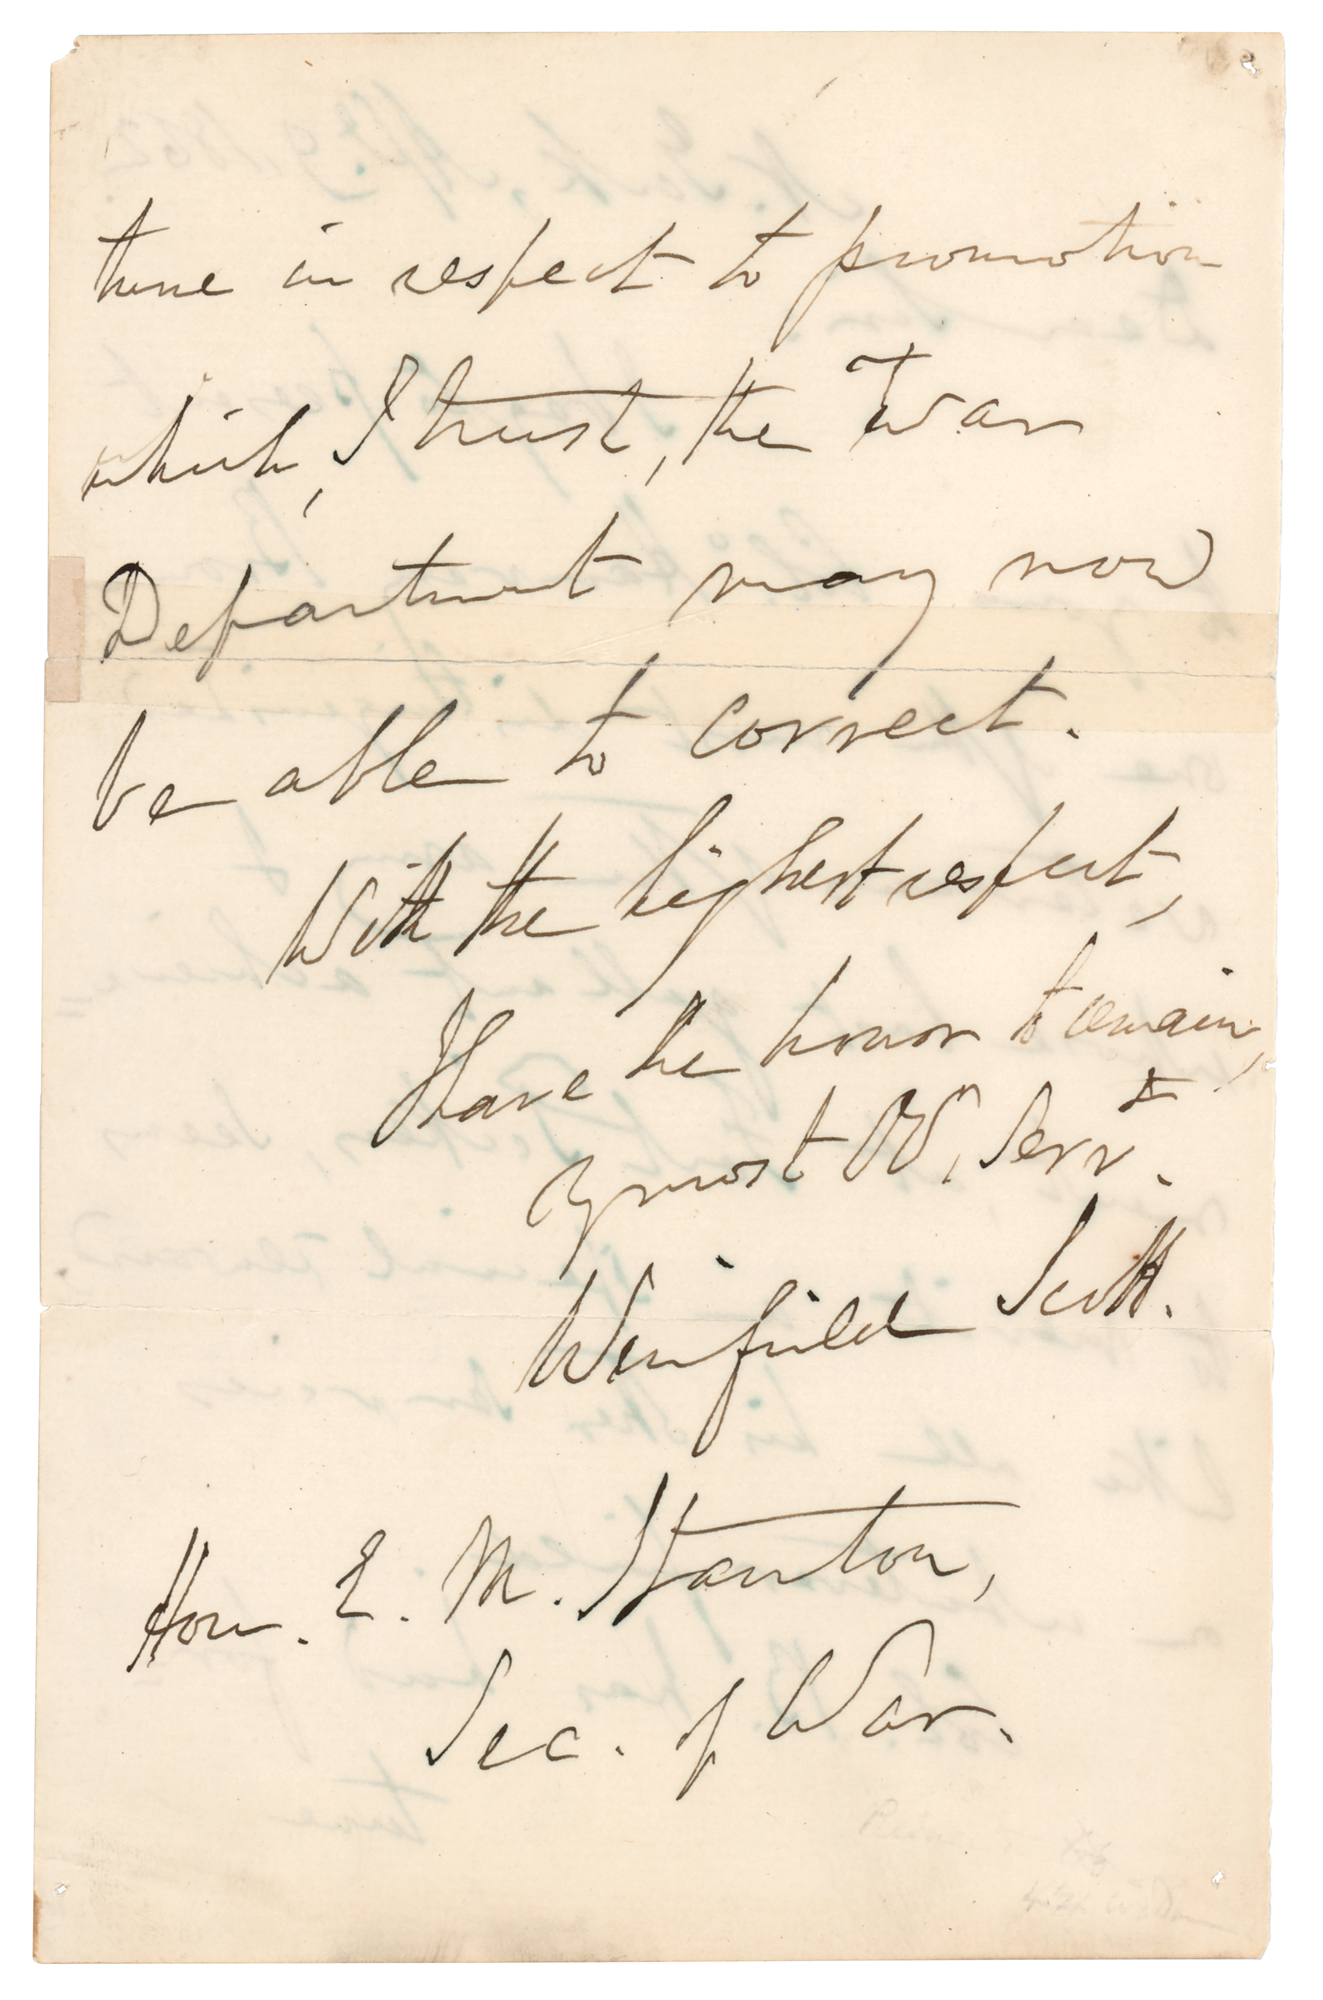 tune in respect to promotion
which, I trust, the War
Department may now
be able to correct.
With the highest respect,
Have the honor to remain,
Yr most Ob, Servt.
Winfield Scott.
Hon. E. M. Stanton,
Sec. of War.